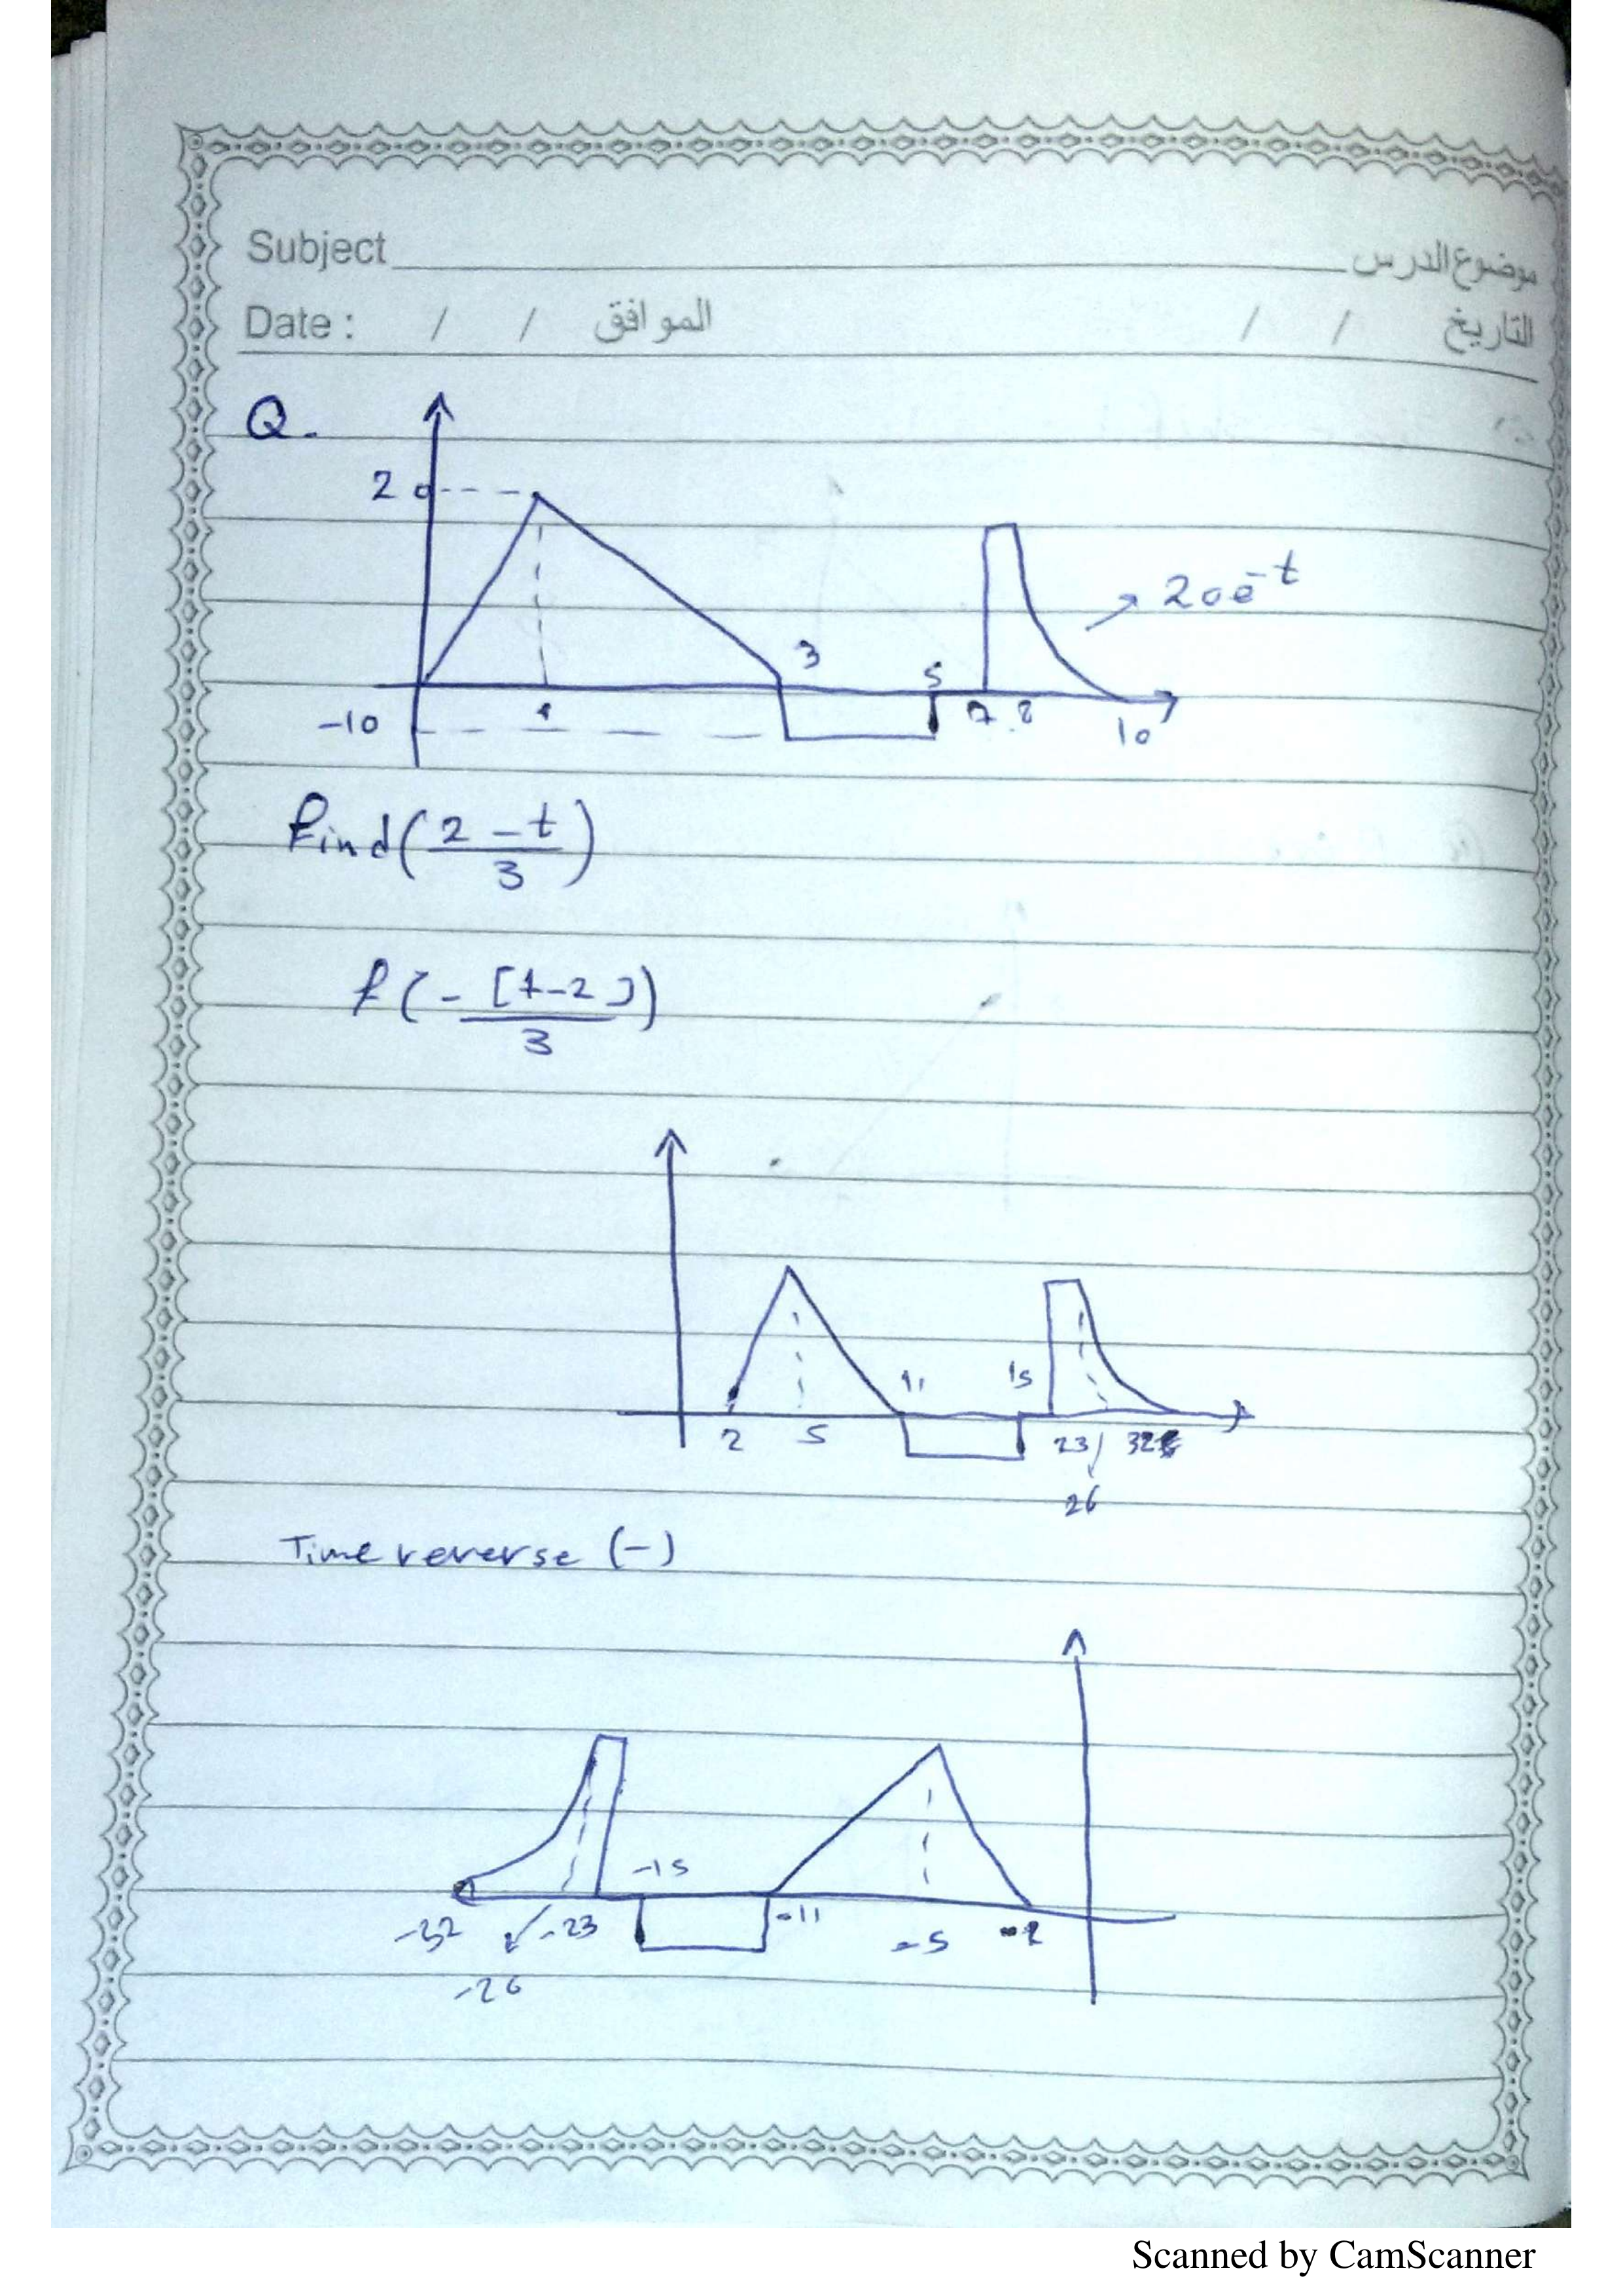 Subject موضوع الدرس
Date : / / الموافق / / التاريخ
Q.
2
20e^-t
3
5
-10 1 7 8 10
find(2 - t / 3)
f(- [t-2] / 3)
11 15
2 5 23 32
26
Time reverse (-)
-15
-32 -23 -11 -5 -2
-26
Scanned by CamScanner